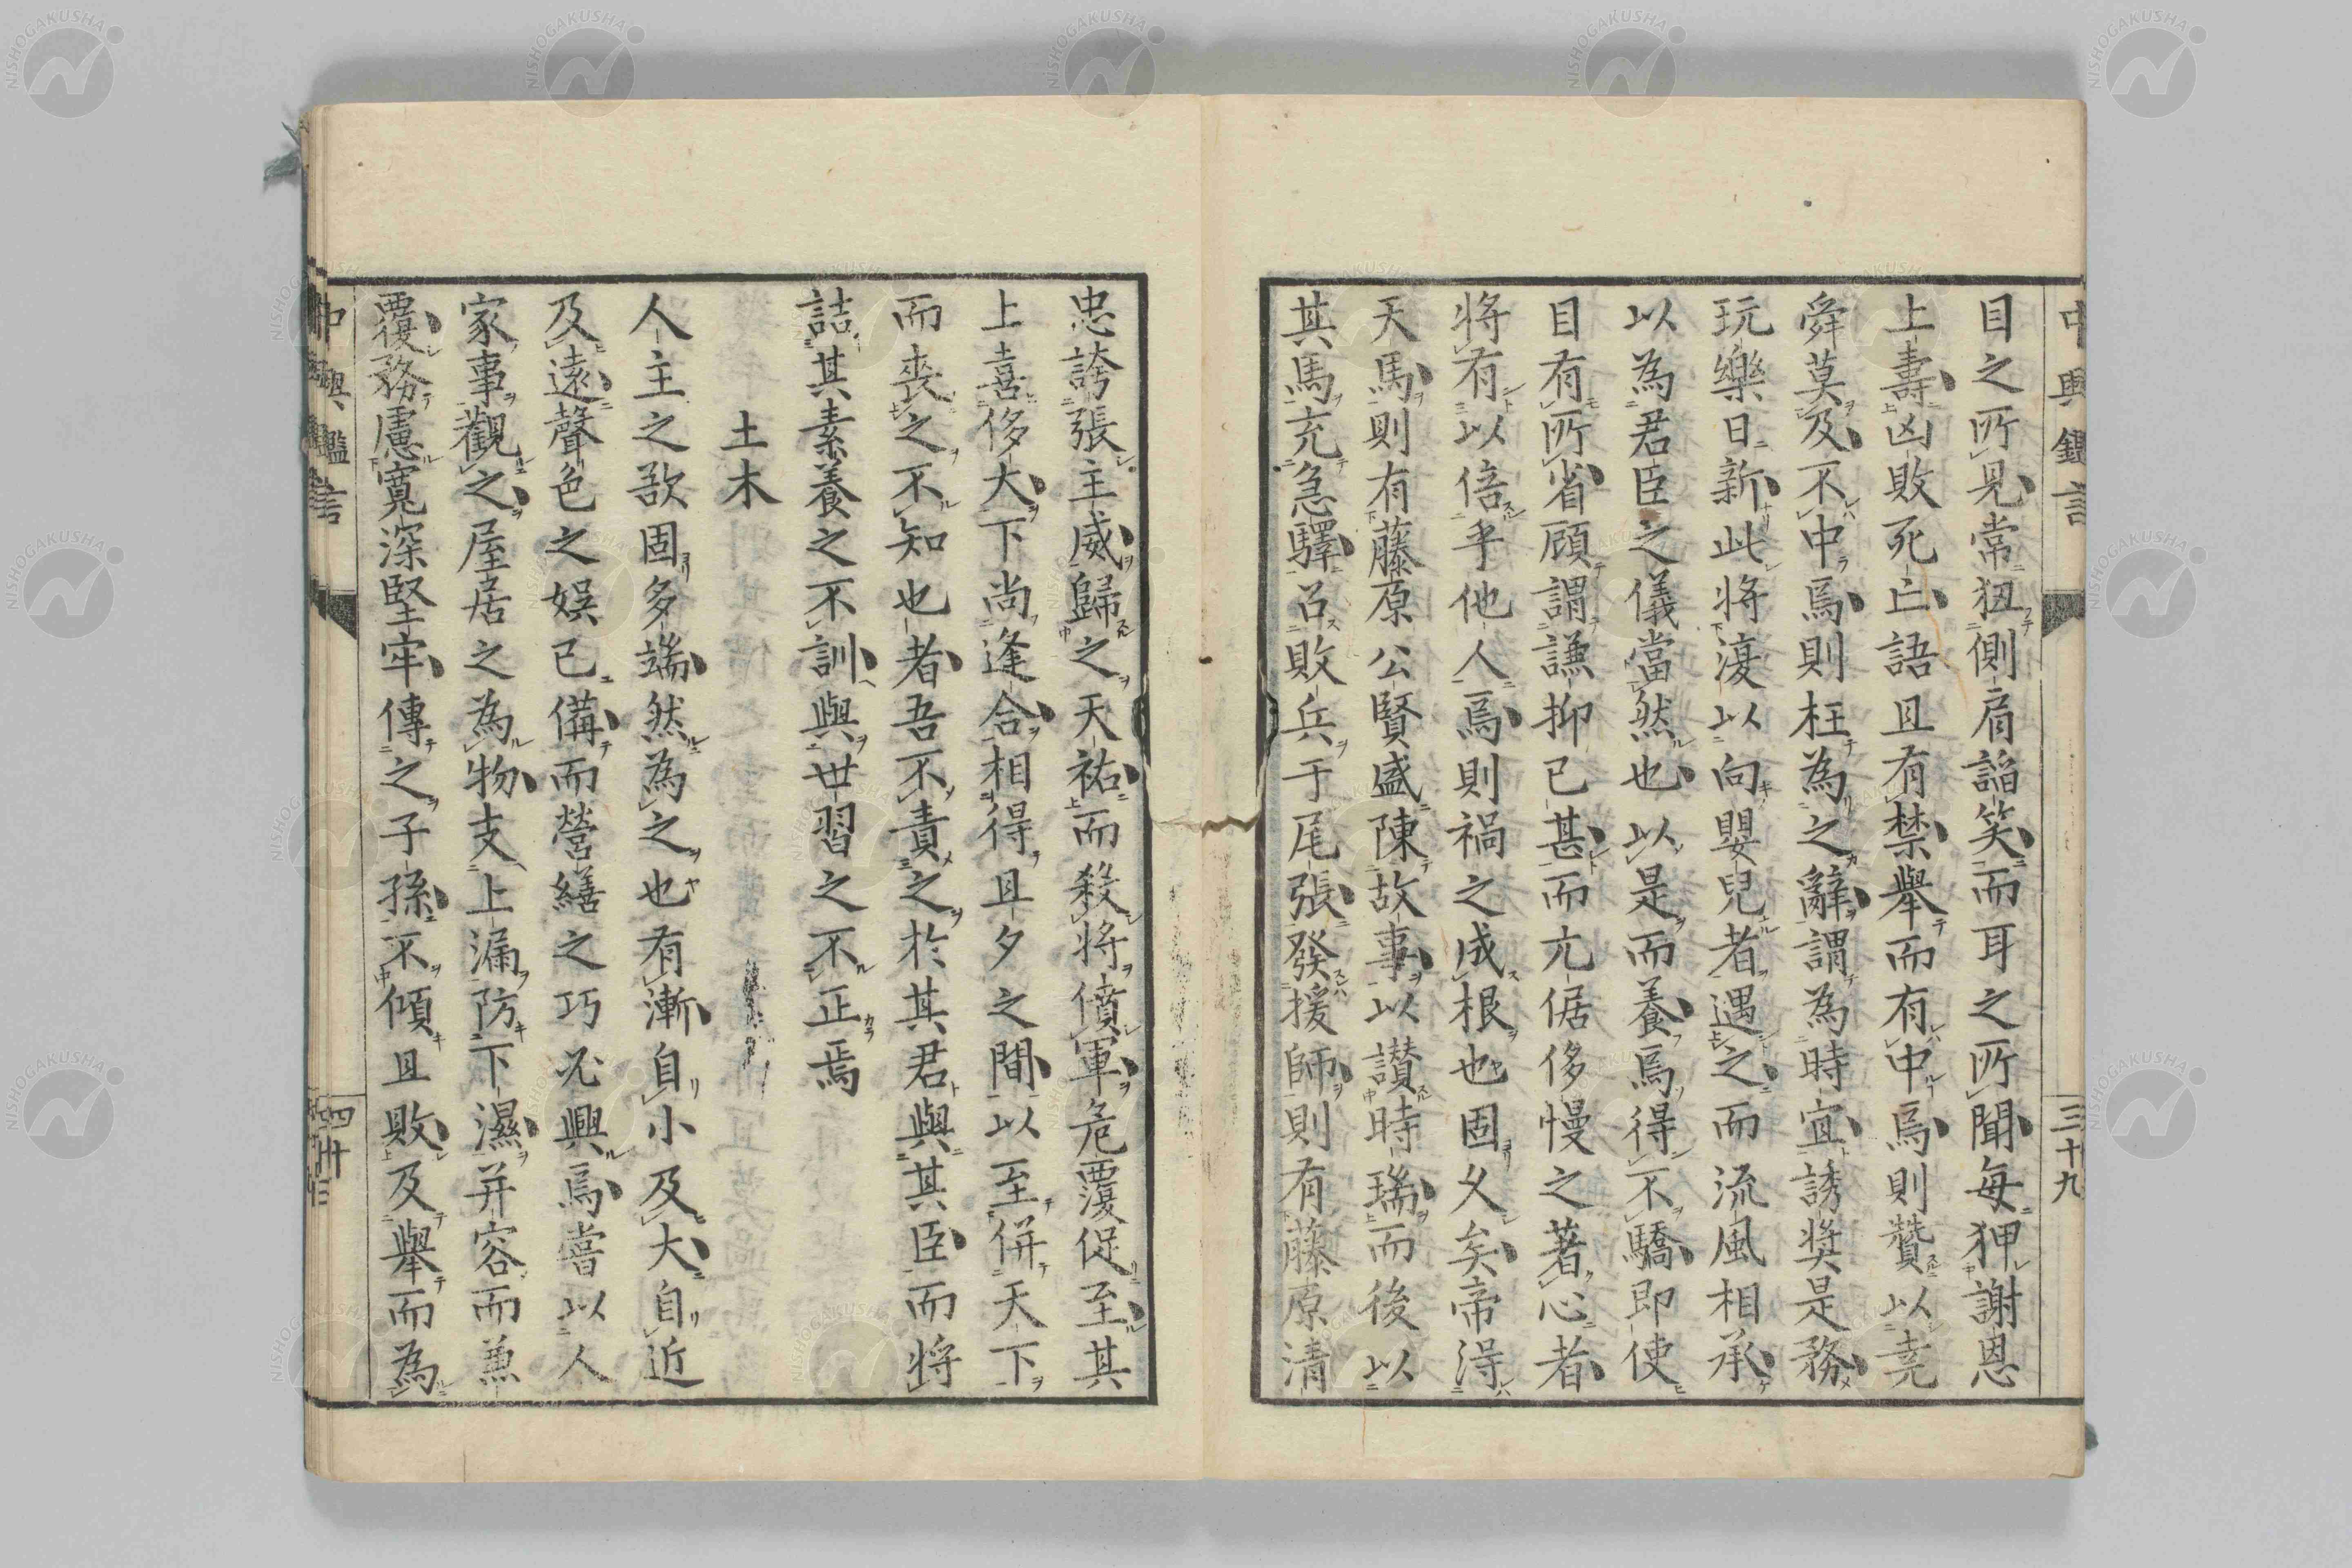 中興鑑言
三十九
目之所見常狃側肩諂笑而耳之所聞每狎謝恩
上壽凶敗死亡語且有禁舉而有中焉則贊以堯
舜莫及不中焉則枉為之辭謂為時宜誘奨是務
玩樂日新此将濅以向嬰兒者遇之而流風相承
以為君臣之儀當然也以是而養焉得不驕即使
目有所省顧謂謙抑已甚而亢倨侈慢之著心者
将有以倍乎他人焉則禍之成根也固久矣帝得
天馬則有藤原公賢盛陳故事以讃時瑞而後以
其馬充急驛召敗兵于尾張發援師則有藤原清
忠誇張主威歸之天祐而殺将僨軍危覆促至其
上喜侈大下尚逢合相得且夕之間以至併天下
而喪之不知也者吾不責之於其君與其臣而将
詰其素養之不訓與世習之不正焉
土木
人主之欲固多端然為之也有漸自小及大自近
及遠聲色之娯已備而營繕之巧必興焉嘗以人
家事觀之屋居之為物支上漏防下濕并容而兼
覆務慮寛深堅牢傳之子孫不傾且敗及舉而為
中興鑑言
四十